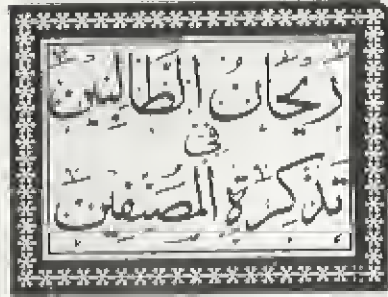 ريحان الطالبين
في
تذكرة المصنفين